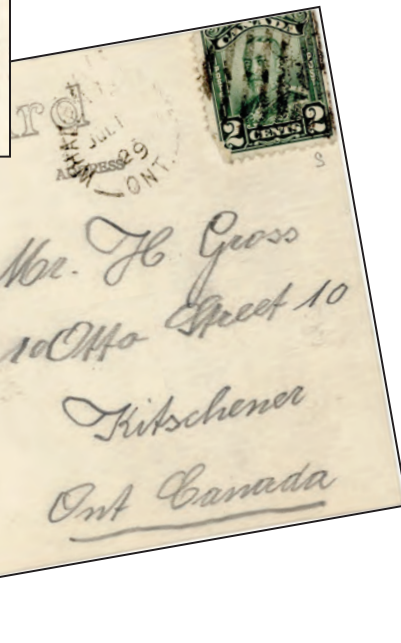 CANADA
2 CENTS 2
JUL 1
29
ONT.
ADDRESS
S
Mr. H Gross
10 Otto Street 10
Kitschener
Ont Canada